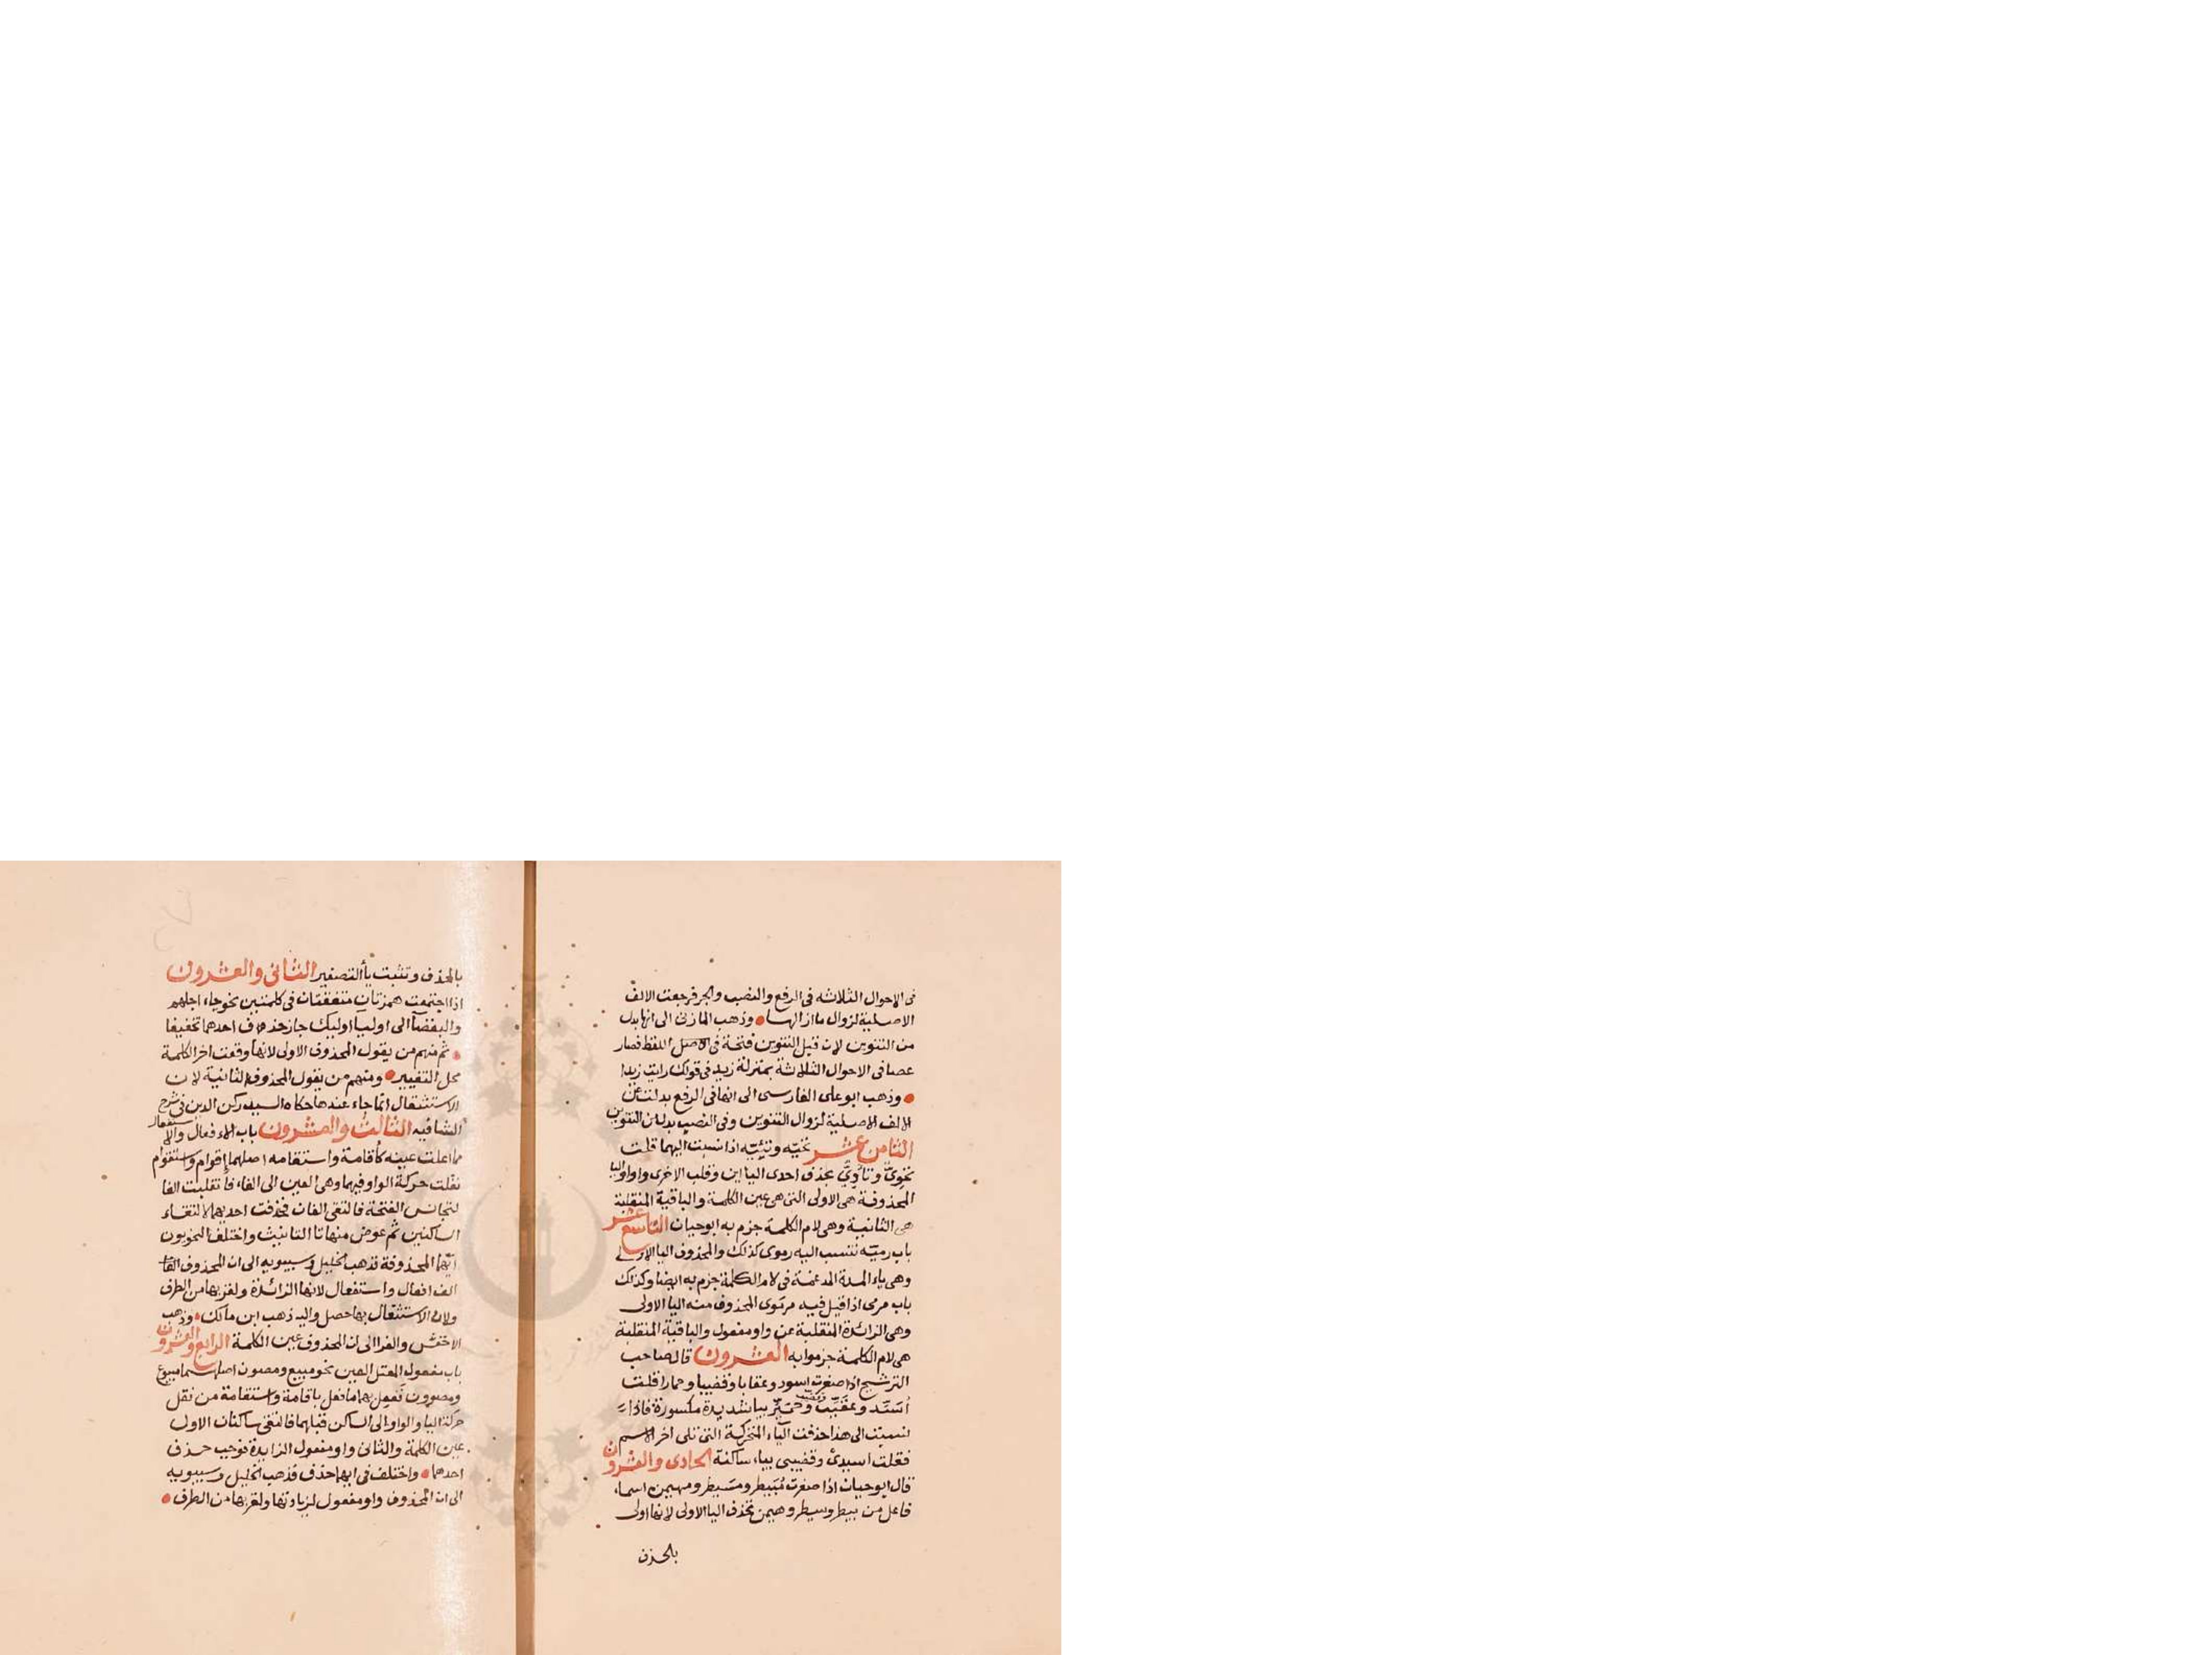 فى الاحوال الثلاثه فى الرفع والنصب والجر فرجعت الالف
الاصلية لزوال ما ازالها وذهب المازنى الى انها بدل
من التنوين لان قبل التنوين فتحة فى الاصل اللفظ فصار
عصا فى الاحوال الثلاثة بمنزلة زيد فى قولك رايت زيدا
وذهب ابو على الفارسى الى انها فى الرفع بدلت عن
الالف الاصلية لزوال التنوين وفى النصب بدل من التنوين
الثامن عشر تحيّه وتئيّه اذا نسبت اليهما قلت
تحوىّ وتاوىّ بحذف احدى اليااين وقلب الاخرى واوا واليا
المحذوفة هى الاولى التى هى عين الكلمة والباقية المنقلبة
هى الثانية وهى لام الكلمة جزم به ابو حيان التاسع عشر
باب رميّه تنسب اليه رموى كذلك والمحذوف اليا الاولى
وهى ياء المدة المدغمة فى لام الكلمة جزم به ايضا وكذلك
باب مرمى اذا قيل فيه مرموى المحذوف منه اليا الاولى
وهى الزائدة المنقلبة عن واو مفعول والباقية المنقلبة
هى لام الكلمة جزموا به العشرون قال صاحب
الترشيح اذا صغرت اسود وعقابا وقضيبا وحمارا قلت
أسَيّد وعقَيّب وقضيّب وحُمَيّر بيا شديدة مكسورة فاذا
نسبت الى هذا حذفت الياء المتحركة التى تلى اخر الاسم
فقلت اسيدى وقضيبى بياء ساكنة الحادى والعشرون
قال ابو حيان اذا صغرت مُبَيطر ومسَيطر ومهيمن اسماء
فاعل من بيطر وسيطر وهيمن تحذف اليا الاولى لانها اولى
بالحذف
بالحذف وتثبت يا التصغير الثانى والعشرون
اذا اجتمعت همزتان متفقتان فى كلمتين نحو جاء اجلهم
والبغضآ الى اوليا اوليك جاز حذف احدهما تخفيفا
ثم منهم من يقول المحذوف الاولى لانها وقعت اخر الكلمة
محل التغيير ومنهم من يقول المحذوف الثانية لان
الاستثقال انما جاء عندها حكاه السيد ركن الدين فى شرح
الشافيه الثالث والعشرون باب الافعال والاستفعال
مما اعلت عينه كأقامة واستقامه اصلهما إقوام واستقوام
نقلت حركة الواو فيهما وهى العين الى الفاء فانقلبت الفا
لتجانس الفتحة فالتقى الفان فحذفت احديهما لالتقاء
الساكنين ثم عوض منها تا التانيث واختلف النحويون
ايهما المحذوفة فذهب الخليل وسيبويه الى ان المحذوف
الف افعال واستفعال لانها الزائدة ولقربها من الطرف
ولان الاستثقال بها حصل واليه ذهب ابن مالك وذهب
الاخفش والفرا الى ان المحذوف عين الكلمة الرابع والعشرون
باب مفعول المعتل العين نحو مبيع ومصون اصلهما مبيوع
ومصوون ففعل بهما ما فعل باقامة واستقامة من نقل
حركة اليا والواو الى الساكن قبلهما فالتقى ساكنان الاول
عين الكلمة والثانى واو مفعول الزايدة فوجب حذف
احدهما واختلف فى ايهما حذف فذهب الخليل وسيبويه
الى ان المحذوف واو مفعول لزيادتها ولقربها من الطرف